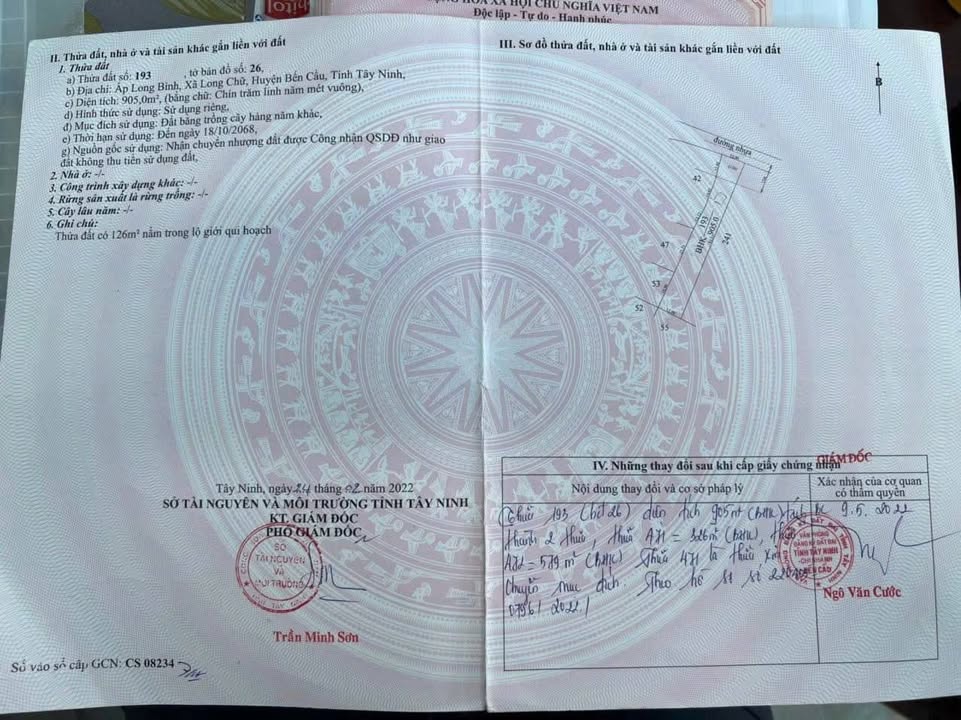 HÒA XÃ HỘI CHỦ NGHĨA VIỆT NAM
Độc lập - Tự do - Hạnh phúc
II. Thửa đất, nhà ở và tài sản khác gắn liền với đất
1. Thửa đất
a) Thửa đất số: 193 , tờ bản đồ số: 26,
b) Địa chỉ: Ấp Long Bình, Xã Long Chữ, Huyện Bến Cầu, Tỉnh Tây Ninh,
c) Diện tích: 905,0m², (bằng chữ: Chín trăm linh năm mét vuông),
d) Hình thức sử dụng: Sử dụng riêng,
đ) Mục đích sử dụng: Đất bằng trồng cây hàng năm khác,
e) Thời hạn sử dụng: Đến ngày 18/10/2068,
g) Nguồn gốc sử dụng: Nhận chuyển nhượng đất được Công nhận QSDĐ như giao
đất không thu tiền sử dụng đất,
2. Nhà ở: -/-
3. Công trình xây dựng khác: -/-
4. Rừng sản xuất là rừng trồng: -/-
5. Cây lâu năm: -/-
6. Ghi chú:
Thửa đất có 126m² nằm trong lộ giới qui hoạch
Tây Ninh, ngày 24 tháng 02 năm 2022
SỞ TÀI NGUYÊN VÀ MÔI TRƯỜNG TỈNH TÂY NINH
KT. GIÁM ĐỐC
PHÓ GIÁM ĐỐC
SỞ
TÀI NGUYÊN
VÀ
MÔI TRƯỜNG
Trần Minh Sơn
Số vào sổ cấp GCN: CS 08234
III. Sơ đồ thửa đất, nhà ở và tài sản khác gắn liền với đất
B
đường nhựa
42
BHK 193
905.0
241
47
53
52
55
IV. Những thay đổi sau khi cấp giấy chứng nhận
Nội dung thay đổi và cơ sở pháp lý
Xác nhận của cơ quan
có thẩm quyền
GIÁM ĐỐC
Thửa 193 (tờ 26) diện tích 905 m² (BHK) tách BC 9.5.2022
thành 2 thửa, thửa 471 = 326 m² (BHK), thửa
472 = 579 m² (BHK) Thửa 471 là thửa xin
Chuyển mục đích. Theo hồ sơ số
VĂN PHÒNG
ĐĂNG KÝ ĐẤT ĐAI
TỈNH TÂY NINH
CHI NHÁNH
BẾN CẦU
Ngô Văn Cước